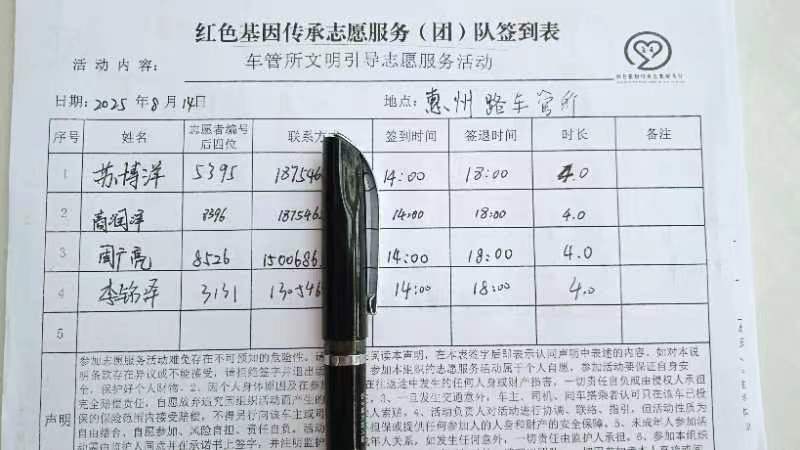 红色基因传承志愿服务（团）队签到表
活动内容： 车管所文明引导志愿服务活动
日期：2025年8月14日 地点：惠州路车管所
序号 姓名 志愿者编号后四位 联系方 签到时间 签退时间 时长 备注
1 苏博洋 5395 187546 14:00 18:00 4.0
2 商润泽 3396 187546 14:00 18:00 4.0
3 周广亮 8526 1500686 14:00 18:00 4.0
4 李铭泽 3131 130546 14:00 18:00 4.0
5
声明
参加志愿服务活动难免存在不可预知的危险性，请 阅读本声明，在本表签字后即表示认同声明中表述的内容。如对本说
明条款存在异议或不能接受，请拒绝签字并退出活 参加本组织的志愿服务活动属于个人自愿，参加活动要保证自身安
全、保护好个人财物。2、因个人身体原因及在参加 在往返途中发生的任何人身或财产损害，一切责任自负或由侵权人承担
完全赔偿责任，自愿放弃追究因组织活动而产生的 3、一旦发生交通意外，车主、司机、同车搭乘者认可只在该车已投
保的保险范围内接受赔偿，不得另行向该车主或司 人索赔。4、活动负责人对活动进行协调、联络、指引，但活动性质为
自由结合、自愿参加、风险自担、责任自负。活动 担保或提供任何参加人的人身和财产的安全保障。5、未成年人参加活
动需由监护人同意并在承诺书上签字，并注明监护 成年人关系，如发生任何意外，一切责任由监护人承担。6、参加本组织